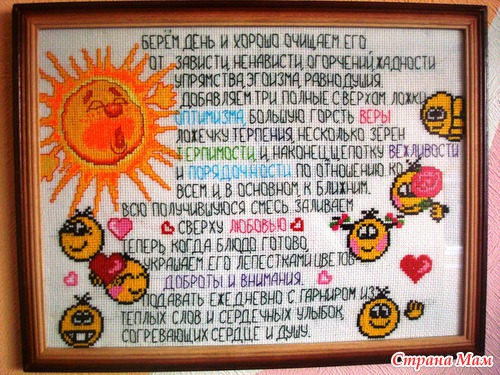 БЕРЁМ ДЕНЬ И ХОРОШО ОЧИЩАЕМ ЕГО
ОТ ЗАВИСТИ, НЕНАВИСТИ, ОГОРЧЕНИЙ, ЖАДНОСТИ
УПРЯМСТВА, ЭГОИЗМА, РАВНОДУШИЯ.
ДОБАВЛЯЕМ ТРИ ПОЛНЫЕ С ВЕРХОМ ЛОЖКИ
ОПТИМИЗМА, БОЛЬШУЮ ГОРСТЬ ВЕРЫ
ЛОЖЕЧКУ ТЕРПЕНИЯ, НЕСКОЛЬКО ЗЁРЕН
ТЕРПИМОСТИ, И, НАКОНЕЦ, ЩЕПОТКУ ВЕЖЛИВОСТИ
И ПОРЯДОЧНОСТИ ПО ОТНОШЕНИЮ КО
ВСЕМ И, В ОСНОВНОМ, К БЛИЖНИМ.
ВСЮ ПОЛУЧИВШУЮСЯ СМЕСЬ ЗАЛИВАЕМ
СВЕРХУ ЛЮБОВЬЮ
ТЕПЕРЬ, КОГДА БЛЮДО ГОТОВО,
УКРАШАЕМ ЕГО ЛЕПЕСТКАМИ ЦВЕТОВ
ДОБРОТЫ И ВНИМАНИЯ.
ПОДАВАТЬ ЕЖЕДНЕВНО С ГАРНИРОМ ИЗ
ТЁПЛЫХ СЛОВ И СЕРДЕЧНЫХ УЛЫБОК,
СОГРЕВАЮЩИХ СЕРДЦЕ И ДУШУ.
Страна Мам